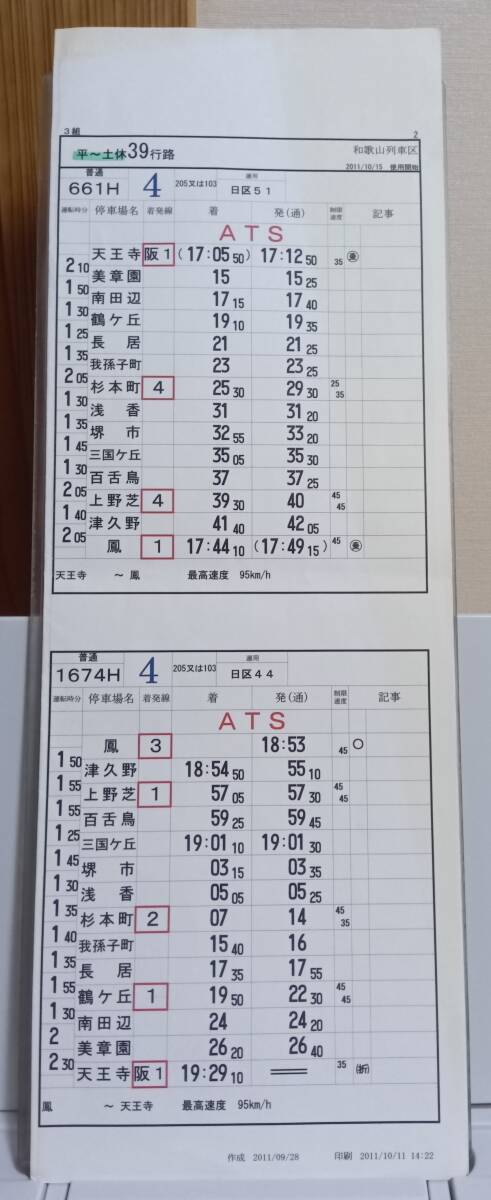 3組 2
平～土休39行路 和歌山列車区
2011/10/15 使用開始
普通 運用
661H 4 205又は103 日区51
運転時分 停車場名 着発線 着 発(通) 制限速度 記事
ATS
天王寺 阪1 (17:05 50) 17:12 50 35 乗
2 10
美章園 15 15 25
1 50
南田辺 17 15 17 40
1 30
鶴ケ丘 19 10 19 35
1 25
長居 21 21 25
1 35
我孫子町 23 23 25
2 05
杉本町 4 25 30 29 30 25 35
1 30
浅香 31 31 20
1 35
堺市 32 55 33 20
1 45
三国ケ丘 35 05 35 30
1 30
百舌鳥 37 37 25
2 05
上野芝 4 39 30 40 45 45
1 40
津久野 41 40 42 05
2 05
鳳 1 17:44 10 (17:49 15) 45 乗
天王寺 ～ 鳳 最高速度 95km/h
普通 運用
1674H 4 205又は103 日区44
運転時分 停車場名 着発線 着 発(通) 制限速度 記事
ATS
鳳 3 18:53 45 ○
1 50
津久野 18:54 50 55 10
1 55
上野芝 1 57 05 57 30 45 45
1 55
百舌鳥 59 25 59 45
1 25
三国ケ丘 19:01 10 19:01 30
1 45
堺市 03 15 03 35
1 30
浅香 05 05 05 25
1 35
杉本町 2 07 14 45 35
1 40
我孫子町 15 40 16
1 35
長居 17 35 17 55
1 55
鶴ケ丘 1 19 50 22 30 45 45
1 30
南田辺 24 24 20
2
美章園 26 20 26 40
2 30
天王寺 阪1 19:29 10 35 (折)
鳳 ～ 天王寺 最高速度 95km/h
作成 2011/09/28 印刷 2011/10/11 14:22